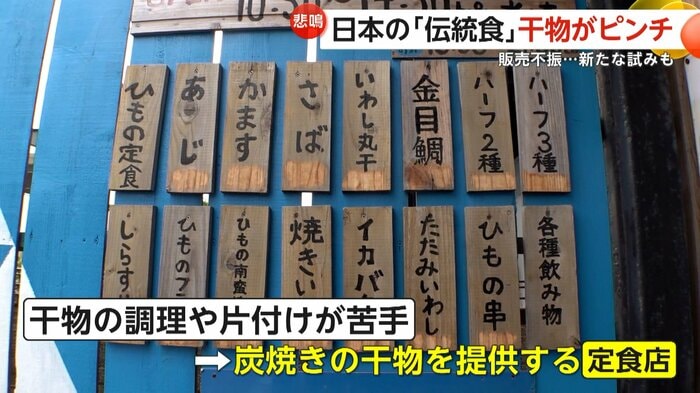 悲鳴
日本の「伝統食」干物がピンチ
販売不振…新たな試みも
ハーフ3種
ハーフ2種
金目鯛
いわし丸干
さば
かます
あじ
ひもの定食
各種飲み物
ひもの串
たたみいわし
イカバ
焼きい
ひもの南蛮
ひものフラ
しらす
干物の調理や片付けが苦手
→炭焼きの干物を提供する定食店